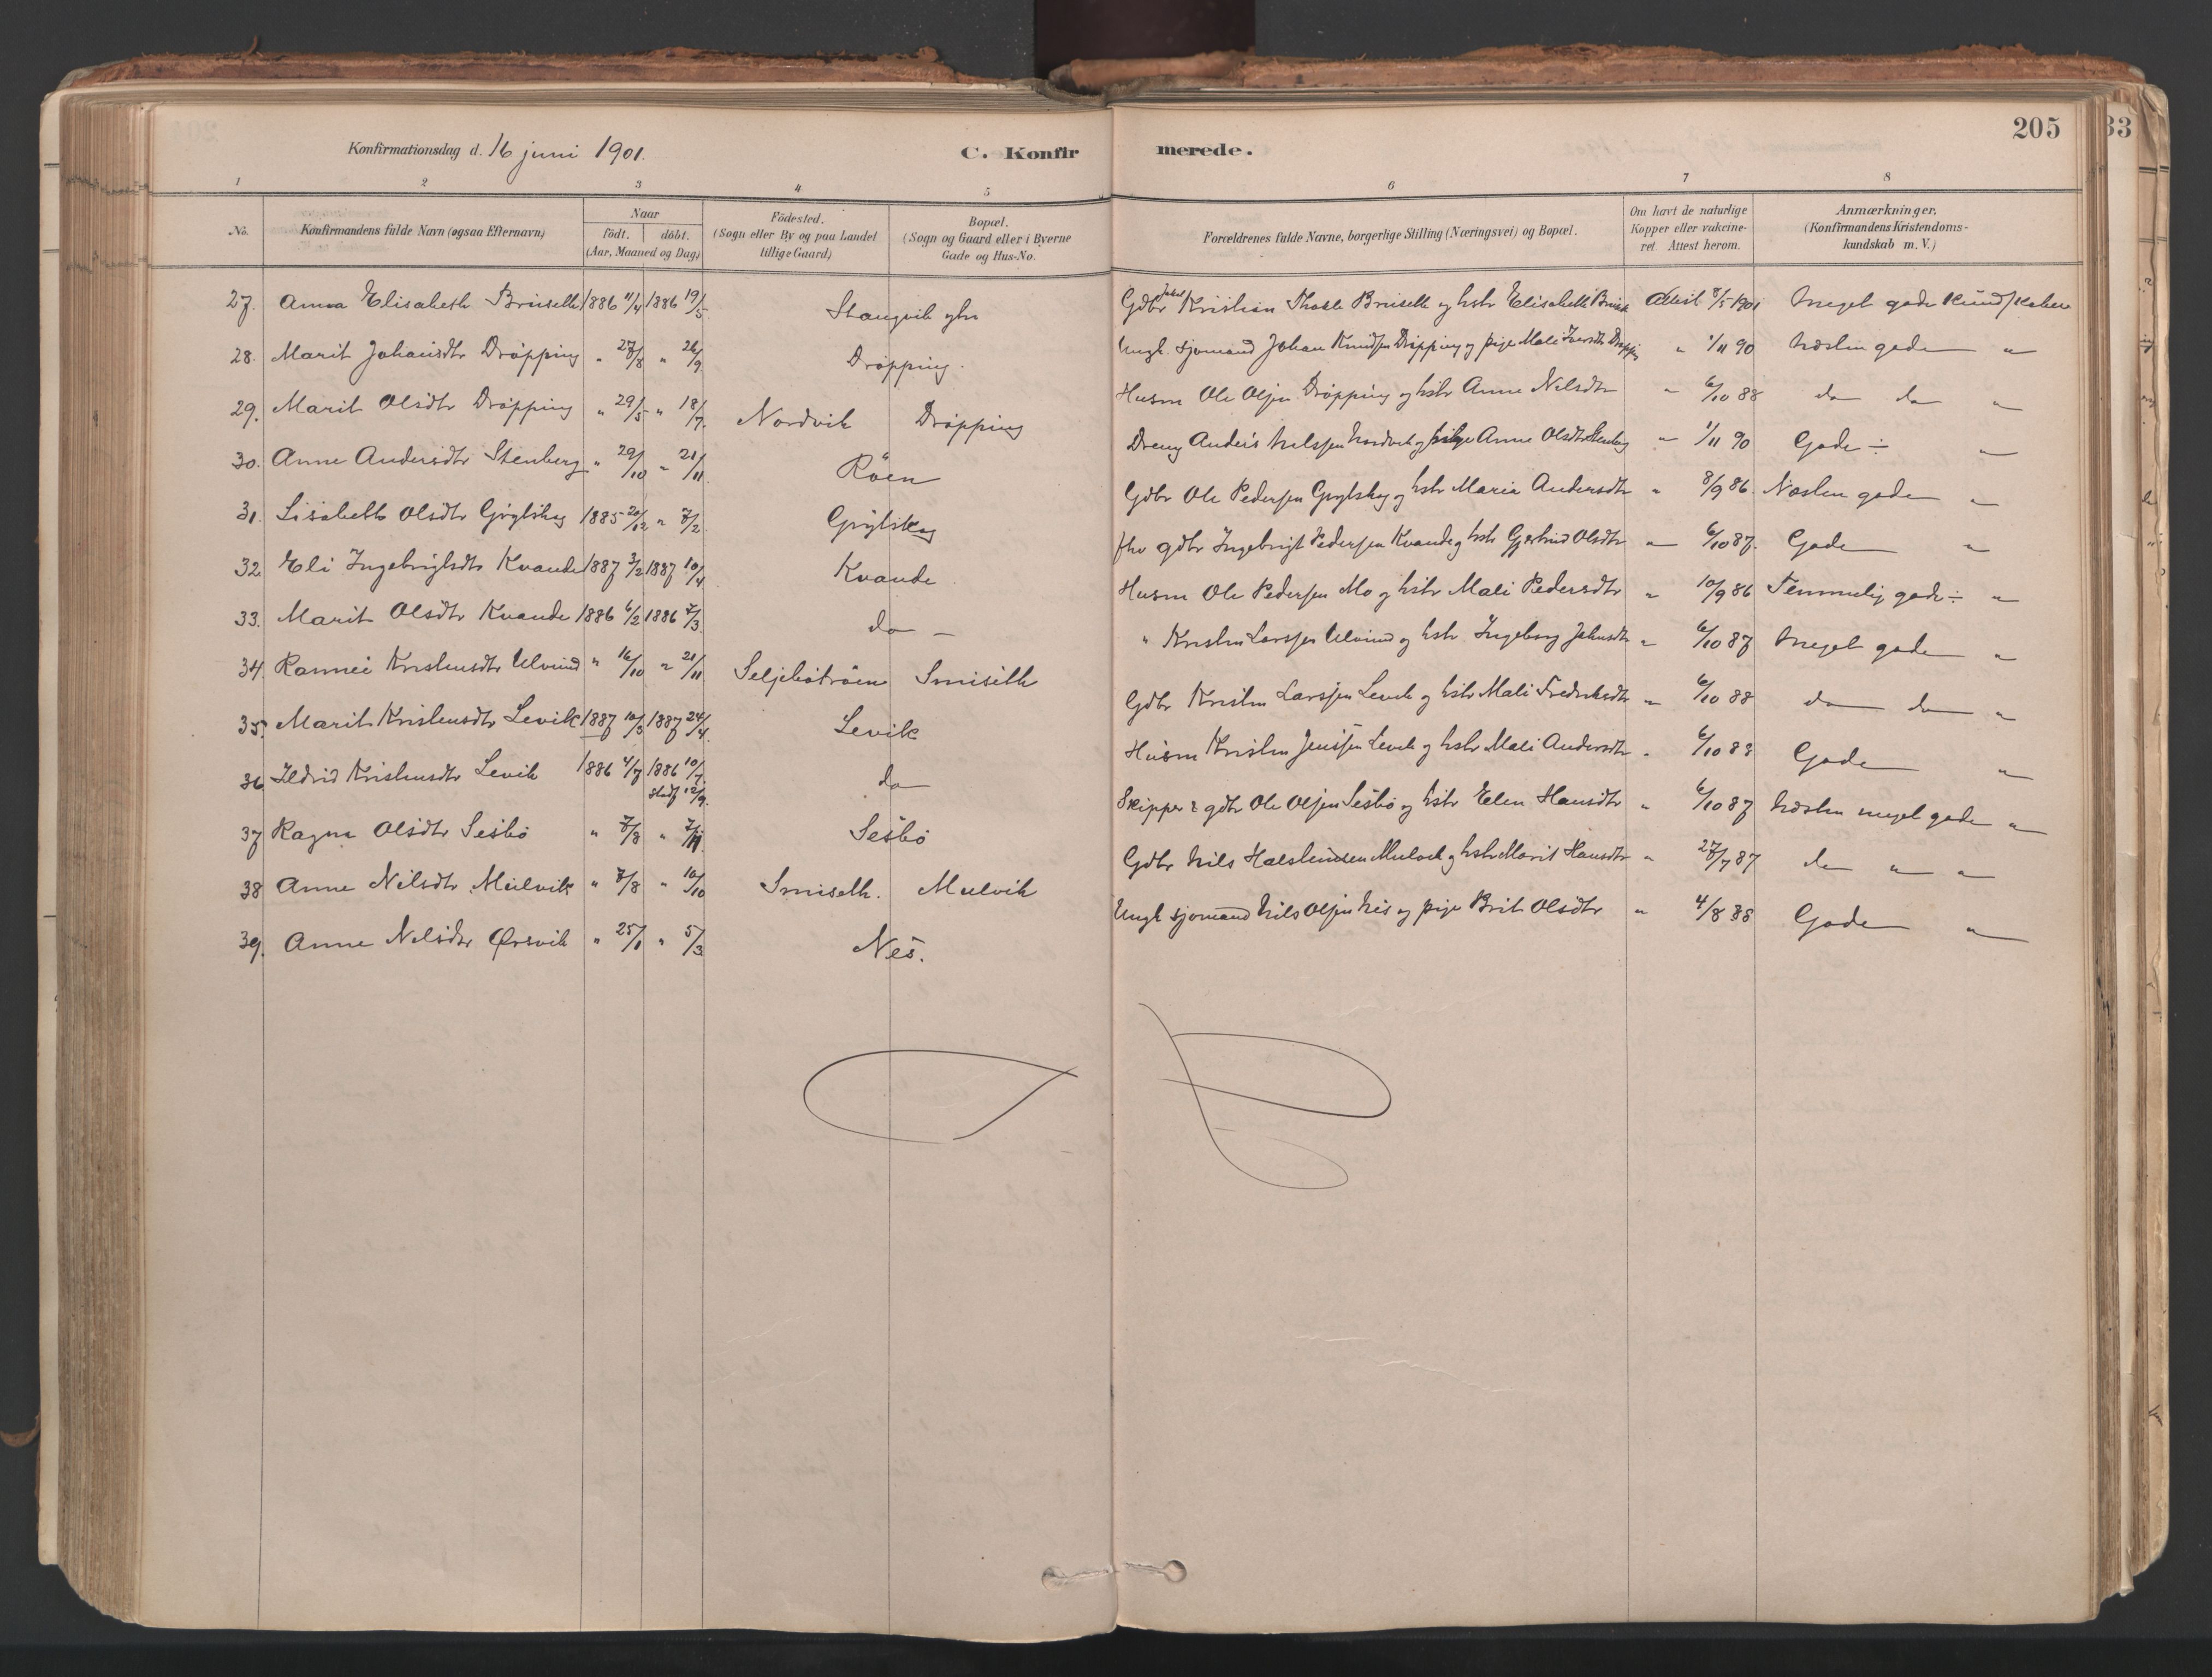 205
33
Konfirmationsdag d. 16 juni 1901.
C. Konfirmerede.
1 2 3 4 5 6 7 8
No.
Konfirmandens fulde Navn (ogsaa Efternavn)
Naar
födt. döbt.
(Aar, Maaned og Dag)
Födested.
(Sogn eller By og paa Landet
tillige Gaard)
Bopæl.
(Sogn og Gaard eller i Byerne
Gade og Hus-No.
Forældrenes fulde Navne, borgerlige Stilling (Næringsvei) og Bopæl.
Om havt de naturlige
Kopper eller vakcine-
ret Attest herom.
Anmærkninger,
(Konfirmandens Kristendoms-
kundskab m. V.)
27. Anna Elisabeth Bruseth 1886 11/4 1886 19/5 Stangvik Gdbr Kristian Bruseth og hstr Elisabeth Attest 8/5 1901 Meget gode
28. Marit Johansdtr Dröpping " 27/8 " 26/9 Dröpping. Ungk. sjomand Johan Knudsen Dröpping og pige Mali " 1/11 90 Næsten gode "
29. Marit Olsdtr Dröpping " 29/5 " 18/7. Nordvik Dröpping Husm Ole Olsen Dröpping og hstr Anne Nelsdtr " 6/10 88 do do "
30. Anne Andersdtr Stenberg " 29/10 " 21/11 Röen Dreng Anders Nelssen Nordvik og pige Anne Olsdtr Stenberg " 1/11 90 Gode ÷ "
31. Lisabeth Olsdtr Grytskog 1885 20/12 " 7/2. Grytskog Gdbr Ole Pedersen Grytskog og hstr Maria Andersdtr " 8/9 86. Næsten gode "
32. Eli Ingebrigtsdtr Kvande 1887 3/2 1887 10/4 Kvande fhv gdbr Ingebrigt Pedersen Kvande og hstr Gjertrud Olsdtr " 6/10 87. Gode "
33. Marit Olsdtr Kvande 1886 6/2 1886 7/3. do — Husm Ole Pedersen Mo og hstr Mali Pedersdtr " 10/9 86 Temmelig gode ÷ "
34. Rannei Kristensdtr Ulvund " 16/10 " 21/11. Seljebötröen Smiseth " Kristen Larssen Ulvund og hstr Ingeborg Johnsdtr " 6/10 87 Meget gode "
35. Marit Kristensdtr Levik 1887 10/3 1887 24/4. Levik Gdbr Kristen Larssen Levik og hstr Mali Fredriksdtr " 6/10 88 do do "
36. Ildrid Kristensdtr Levik 1886 4/7 1886 10/7. do Husm Kristen Jenssen Levik og hstr Mali Andersdtr " 6/10 88 Gode "
Stadf 12/9.
37 Ragna Olsdtr Sesbö " 7/8 " 7/11. Sesbö Skipper & gdbr Ole Olsen Sesbö og hstr Elen Hansdtr " 6/10 87 Næsten meget gode "
38 Anne Nelsdtr Meilvik " 7/8 " 10/10 Smiseth. Mulvik Gdbr Nils Halstensen Mulvik og hstr Marit Hansdtr " 27/7 87 do " "
39. Anne Nelsdtr Ørsvik " 25/1 " 5/3 Nes. Ungk sjomand Nils Olsen Nes og pige Brit Olsdtr " 4/8 88 Gode "